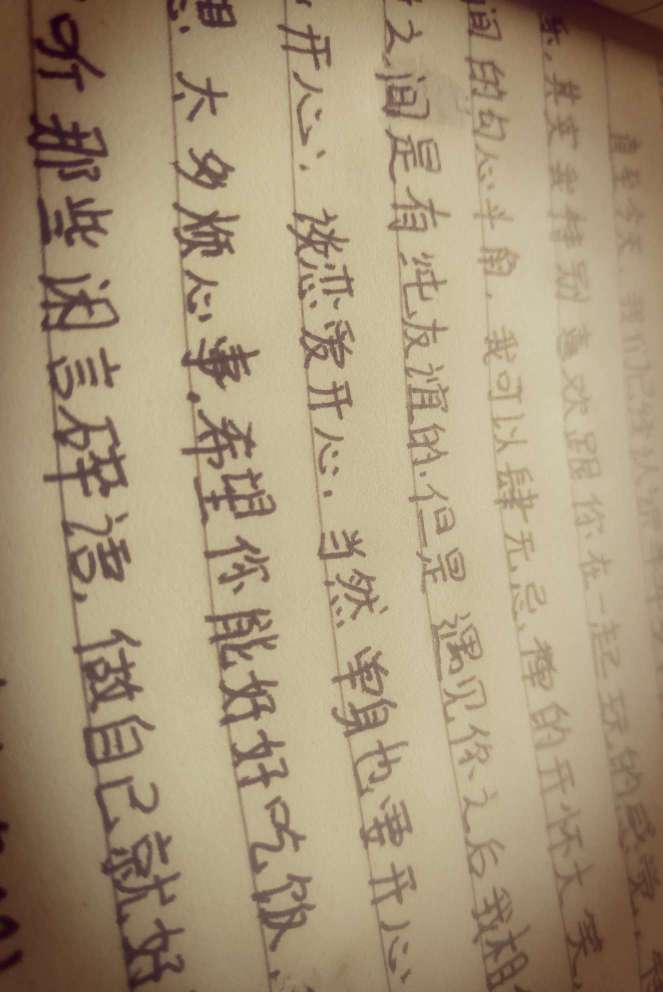 直至今天,我们已经认识
其实我特别喜欢跟你在一起玩的感觉,
间的勾心斗角,我可以肆无忌惮的开怀大笑,
之间是有纯友谊的.但是遇见你之后我相
开心:谈恋爱开心.当然单身也要开心
想太多烦心事.希望你能好好吃饭,
听那些闲言碎语,做自己就好